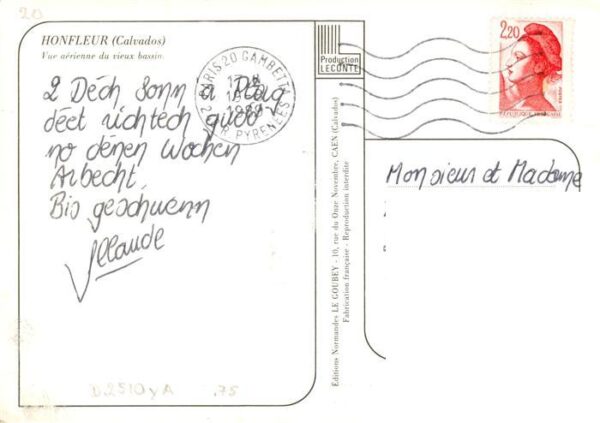 20
HONFLEUR (Calvados)
Vue aérienne du vieux bassin.
2 Dech Sonn a Plag
déet richtech gudd
no denen Wochen
Arbecht.
Bis geschwenn
Claude
D.2510 y A .75
PARIS 20 GAMBETTA
R. PYRENEES
Production
LECONTE
Editions Normandes LE GOUBEY - 10, rue du Onze Novembre, CAEN (Calvados)
Fabrication française - Reproduction interdite
2,20
REPUBLIQUE FRANÇAISE
Monsieur et Madame